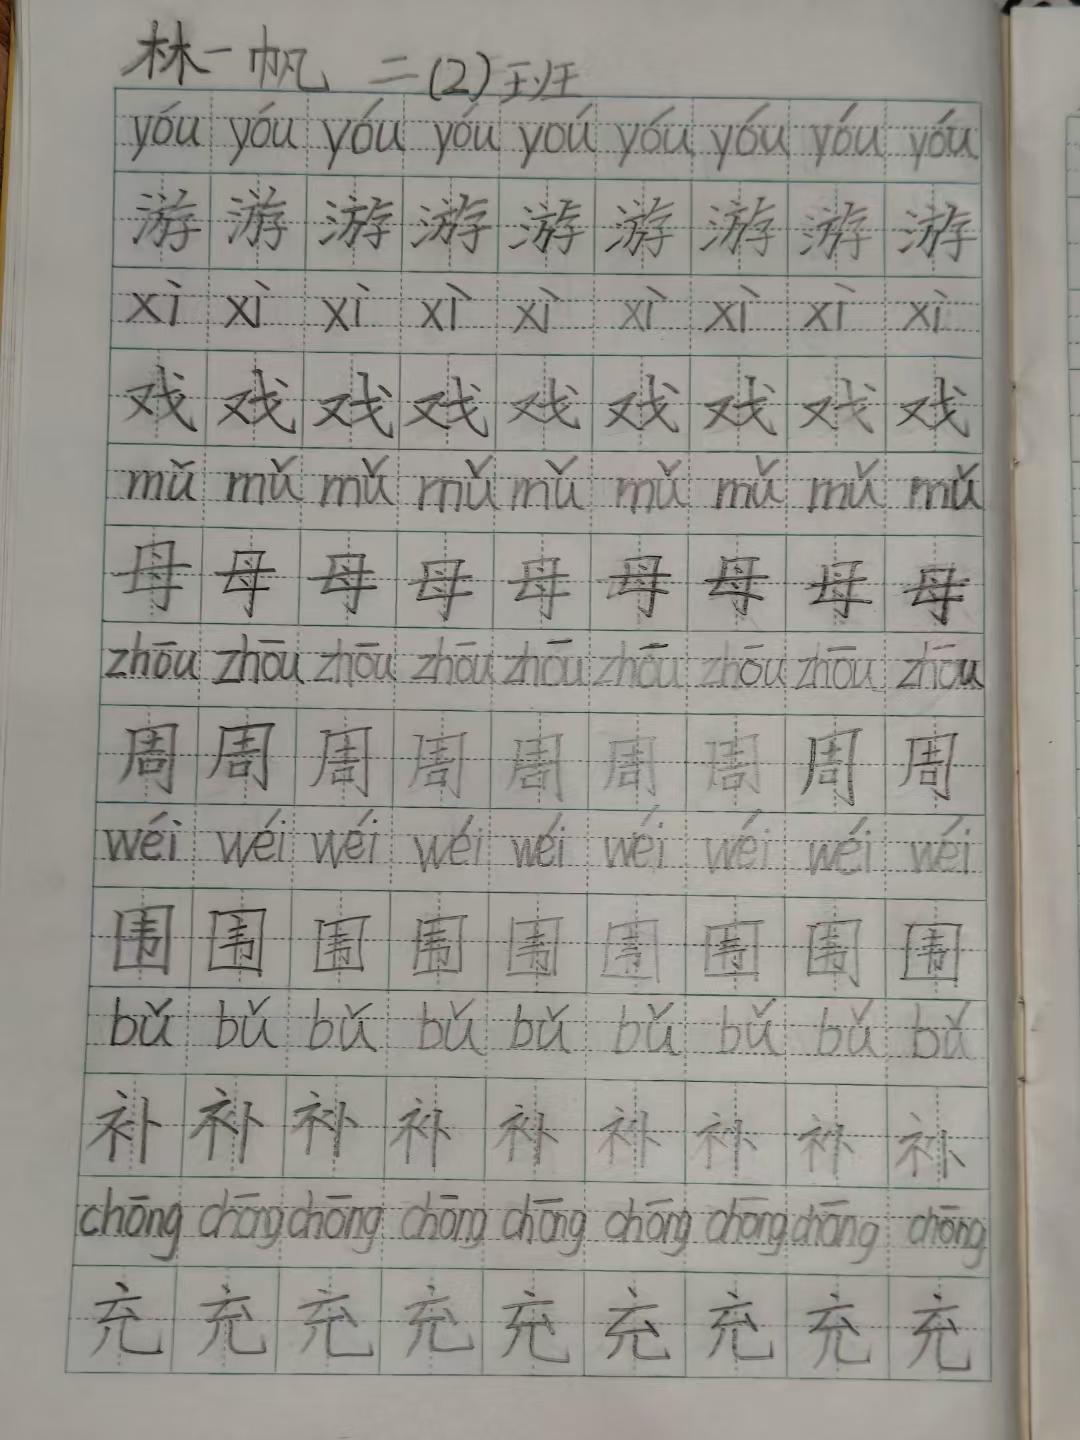 林一帆 二(2)班
yóu yóu yóu yóu yoú yóu yóu yóu yóu
游 游 游 游 游 游 游 游 游
xì xì xì xì xì xì xì xì xì
戏 戏 戏 戏 戏 戏 戏 戏 戏
mǔ mǔ mǔ mǔ mǔ mǔ mǔ mǔ mǔ
母 母 母 母 母 母 母 母 母
zhōu zhōu zhōu zhōu zhōu zhōu zhōu zhōu zhōu
周 周 周 周 周 周 周 周 周
wéi wéi wéi wéi wéi wéi wéi wéi wéi
围 围 围 围 围 围 围 围 围
bǔ bǔ bǔ bǔ bǔ bǔ bǔ bǔ bǔ
补 补 补 补 补 补 补 补 补
chōng chōng chōng chōng chōng chōng chōng chōng chōng
充 充 充 充 充 充 充 充 充